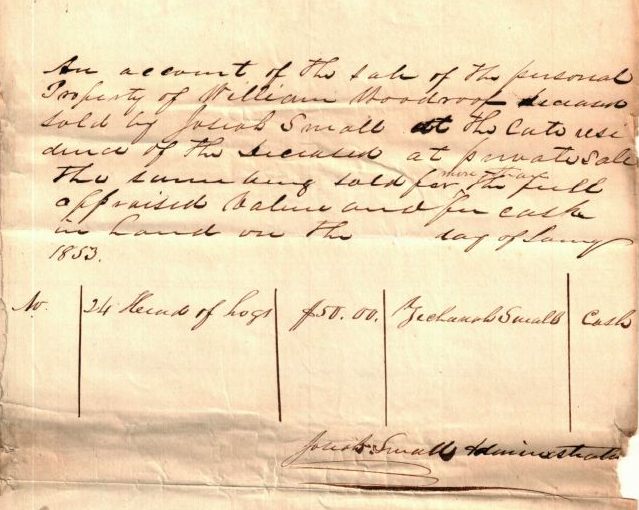 An account of the sale of the personal
Property of William Woodroof deceased
sold by Josiah Small at the late resi
dence of the Deceased at private Sale
more than
the same being sold for the full
appraised value and for cash
in hand on the day of Jany
1853.
No. 24 Head of hogs $50.00. Zechariah Small Cash
Josiah Small Administrator